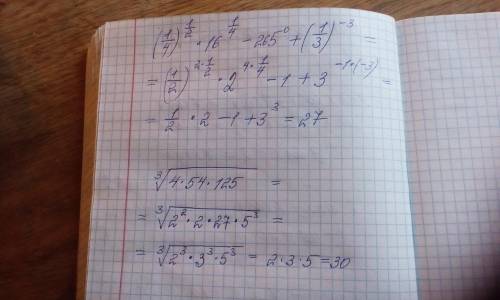 (1/4)^(1/2) · 16^(1/4) − 265^0 + (1/3)^(−3) =
= (1/2)^(2·1/2) · 2^(4·1/4) − 1 + 3^(−1·(−3)) =
= 1/2 · 2 − 1 + 3^3 = 27
∛(4·54·125) =
= ∛(2^2·2·27·5^3) =
= ∛(2^3·3^3·5^3) = 2·3·5=30